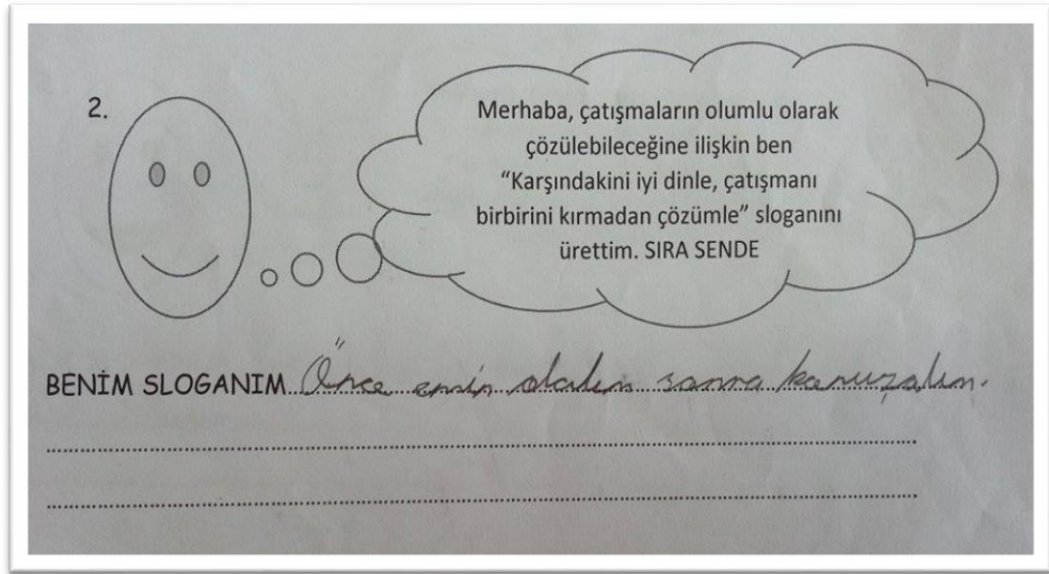 2.
Merhaba, çatışmaların olumlu olarak
çözülebileceğine ilişkin ben
“Karşındakini iyi dinle, çatışmanı
birbirini kırmadan çözümle” sloganını
ürettim. SIRA SENDE
BENİM SLOGANIM Önce emin olalım sonra konuşalım.